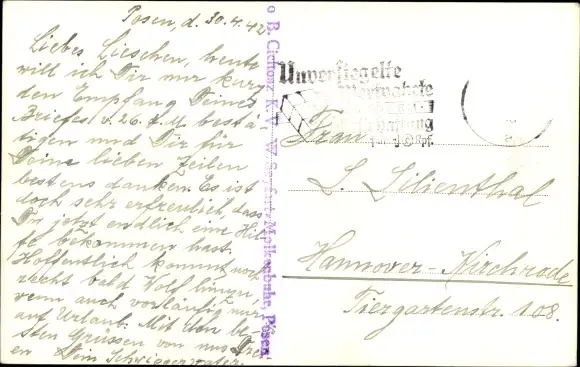 Posen, d. 30.4.42
Liebes Lieschen, heute
will ich Dir nur kurz
den Empfang Deines
Briefes v. 26. d. M. bestä-
tigen und Dir für
Deine lieben Zeilen
bestens danken. Es ist
doch sehr erfreulich, dass
Du jetzt endlich eine Hil-
fe bekommen hast.
Hoffentlich kommt noch
recht bald Wolf hinzu,
wenn auch vorläufig nur
auf Urlaub. Mit den be-
sten Grüssen von uns Drei-
en Dein Schwiegervater.
Unversiegelte
Wertpakete
Frau
L. Lilienthal
Hannover-Kirchrode
Tiergartenstr. 108.